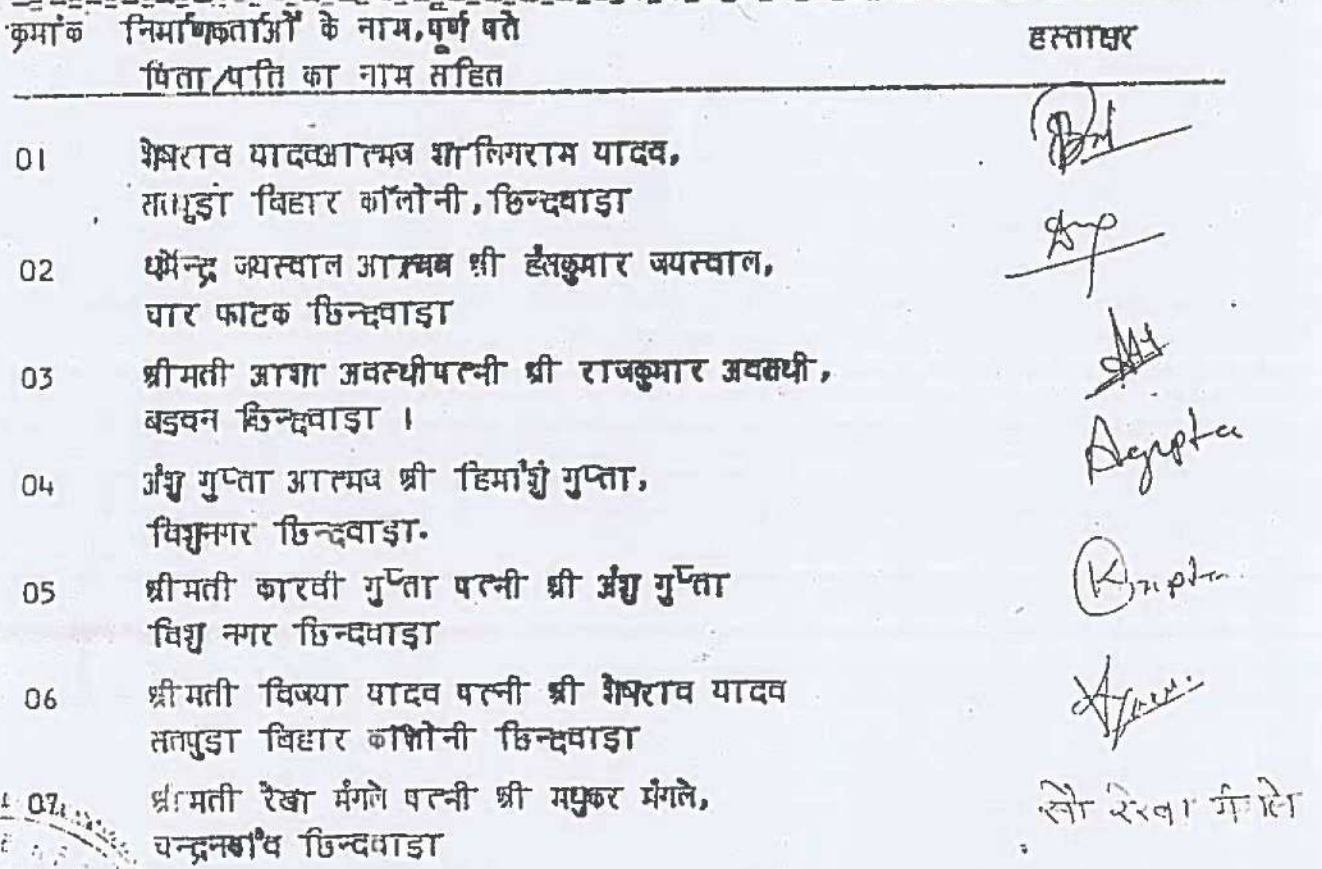 क्रमांक निर्माणकर्ताओं के नाम,पूर्ण पते हस्ताक्षर
पिता/पति का नाम सहित
01 शेषराव यादवआत्मज शालिगराम यादव,
सतपुड़ा विहार कॉलोनी, छिन्दवाड़ा
02 धर्मेन्द्र जयस्वाल आत्मज श्री हंसकुमार जयस्वाल,
चार फाटक छिन्दवाड़ा
03 श्रीमती आशा अवस्थीपत्नी श्री राजकुमार अवस्थी,
बडवन छिन्दवाड़ा ।
04 अंशु गुप्ता आत्मज श्री हिमांशु गुप्ता, Agupta
विशुनगर छिन्दवाड़ा.
05 श्रीमती कारवी गुप्ता पत्नी श्री अंशु गुप्ता KGupta
विशु नगर छिन्दवाड़ा
06 श्रीमती विजया यादव पत्नी श्री शेषराव यादव
सतपुडा विहार कॉलोनी छिन्दवाड़ा
07 श्रीमती रेखा मंगले पत्नी श्री मधुकर मंगले, सौ रेखा मंगले
चन्दनगाँव छिन्दवाड़ा